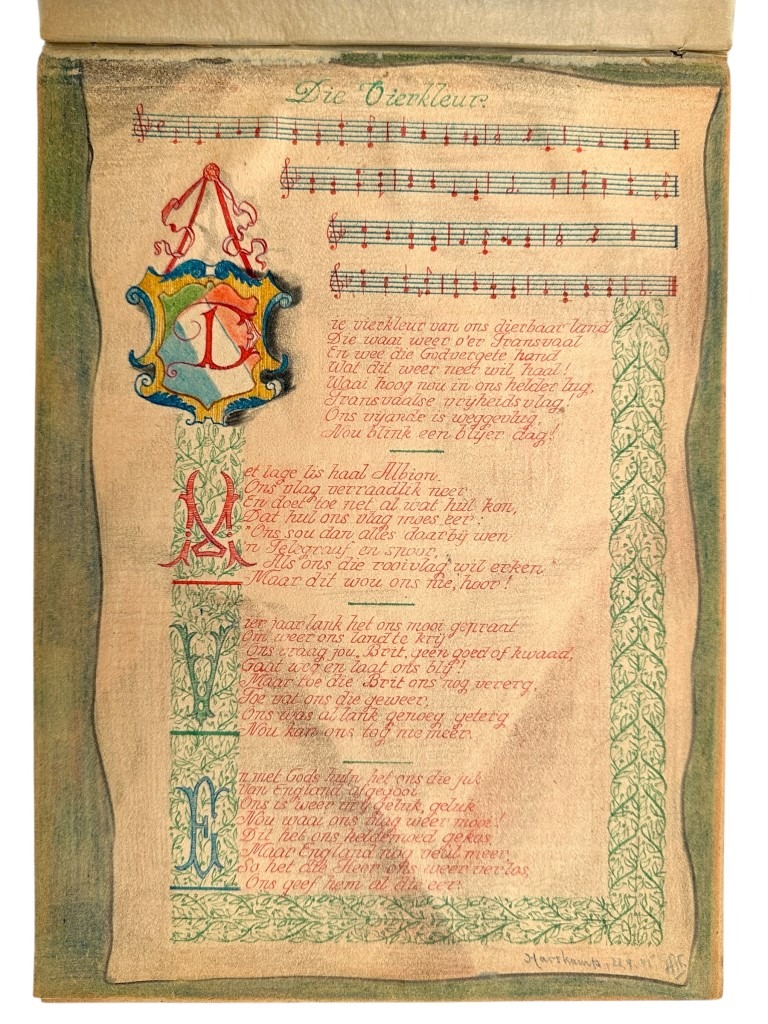 Die Vierkleur.
Die vierkleur van ons dierbaar land
Die waai weer o'er Transvaal
En wee die Godvergete hand
Wat dit weer neer wil haal!
Waai hoog nou in ons helder lug,
Transvaalse vrijheidsvlag!
Ons vijande is weggevlug,
Nou blink een blijer dag!
Met lage lis haal Albion
Ons vlag verraadlik neer
En doet toe net al wat hul kon,
Dat hul ons vlag moes eer:
"Ons sou dan alles daarbij wen
'n Telegraaf en spoor,
Als ons die rooivlag wil erken
Maar dit wou ons nie, hoor!
Vier jaar lank het ons mooi gepraat
Om weer ons land te krij
Ons vraag jou, Brit, geen goed of kwaad,
Gaat weg en laat ons blij!
Maar toe die Brit ons nog vererg,
Toe vat ons die geweer,
Ons was al lank genoeg geterg
Nou kan ons tog nie meer.
En met Gods hulp het ons die juk
Van England afgegooi
Ons is weer vrij geluk, geluk
Nou waai ons vlag weer mooi!
Dit het ons heldemoed gekos,
Maar England nog veul meer,
So het die Heer ons weer verlos,
Ons geef hem al die eer.
Harskamp,